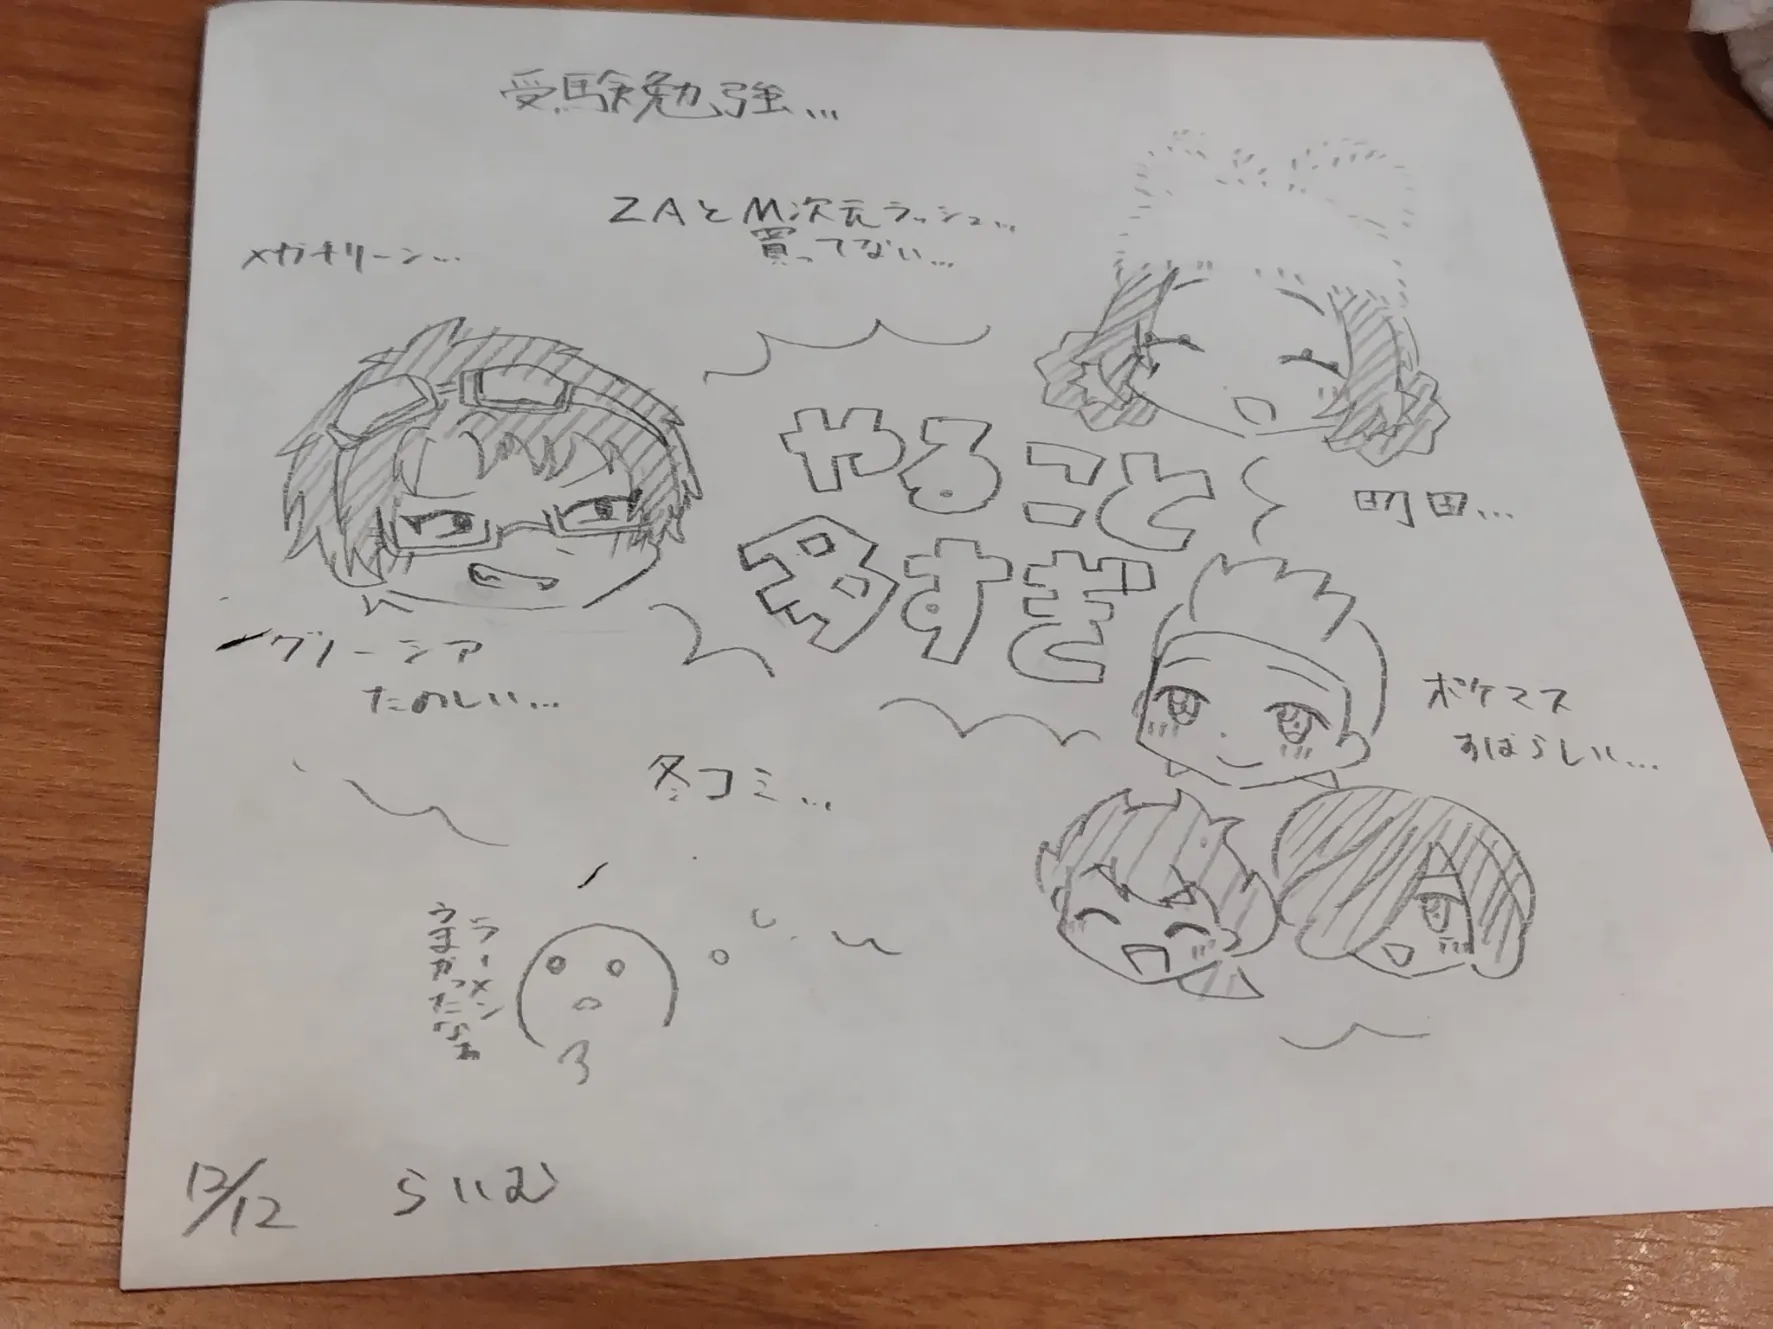 受験勉強...
ZAとM次元ラッシュ...
買ってない...
メガオリーン...
やること
多すぎ
町田...
グリーンシア
たのしい...
ポケマス
すばらしい...
冬コミ...
ラーメン
うまかったなぁ
12/12 らいむ